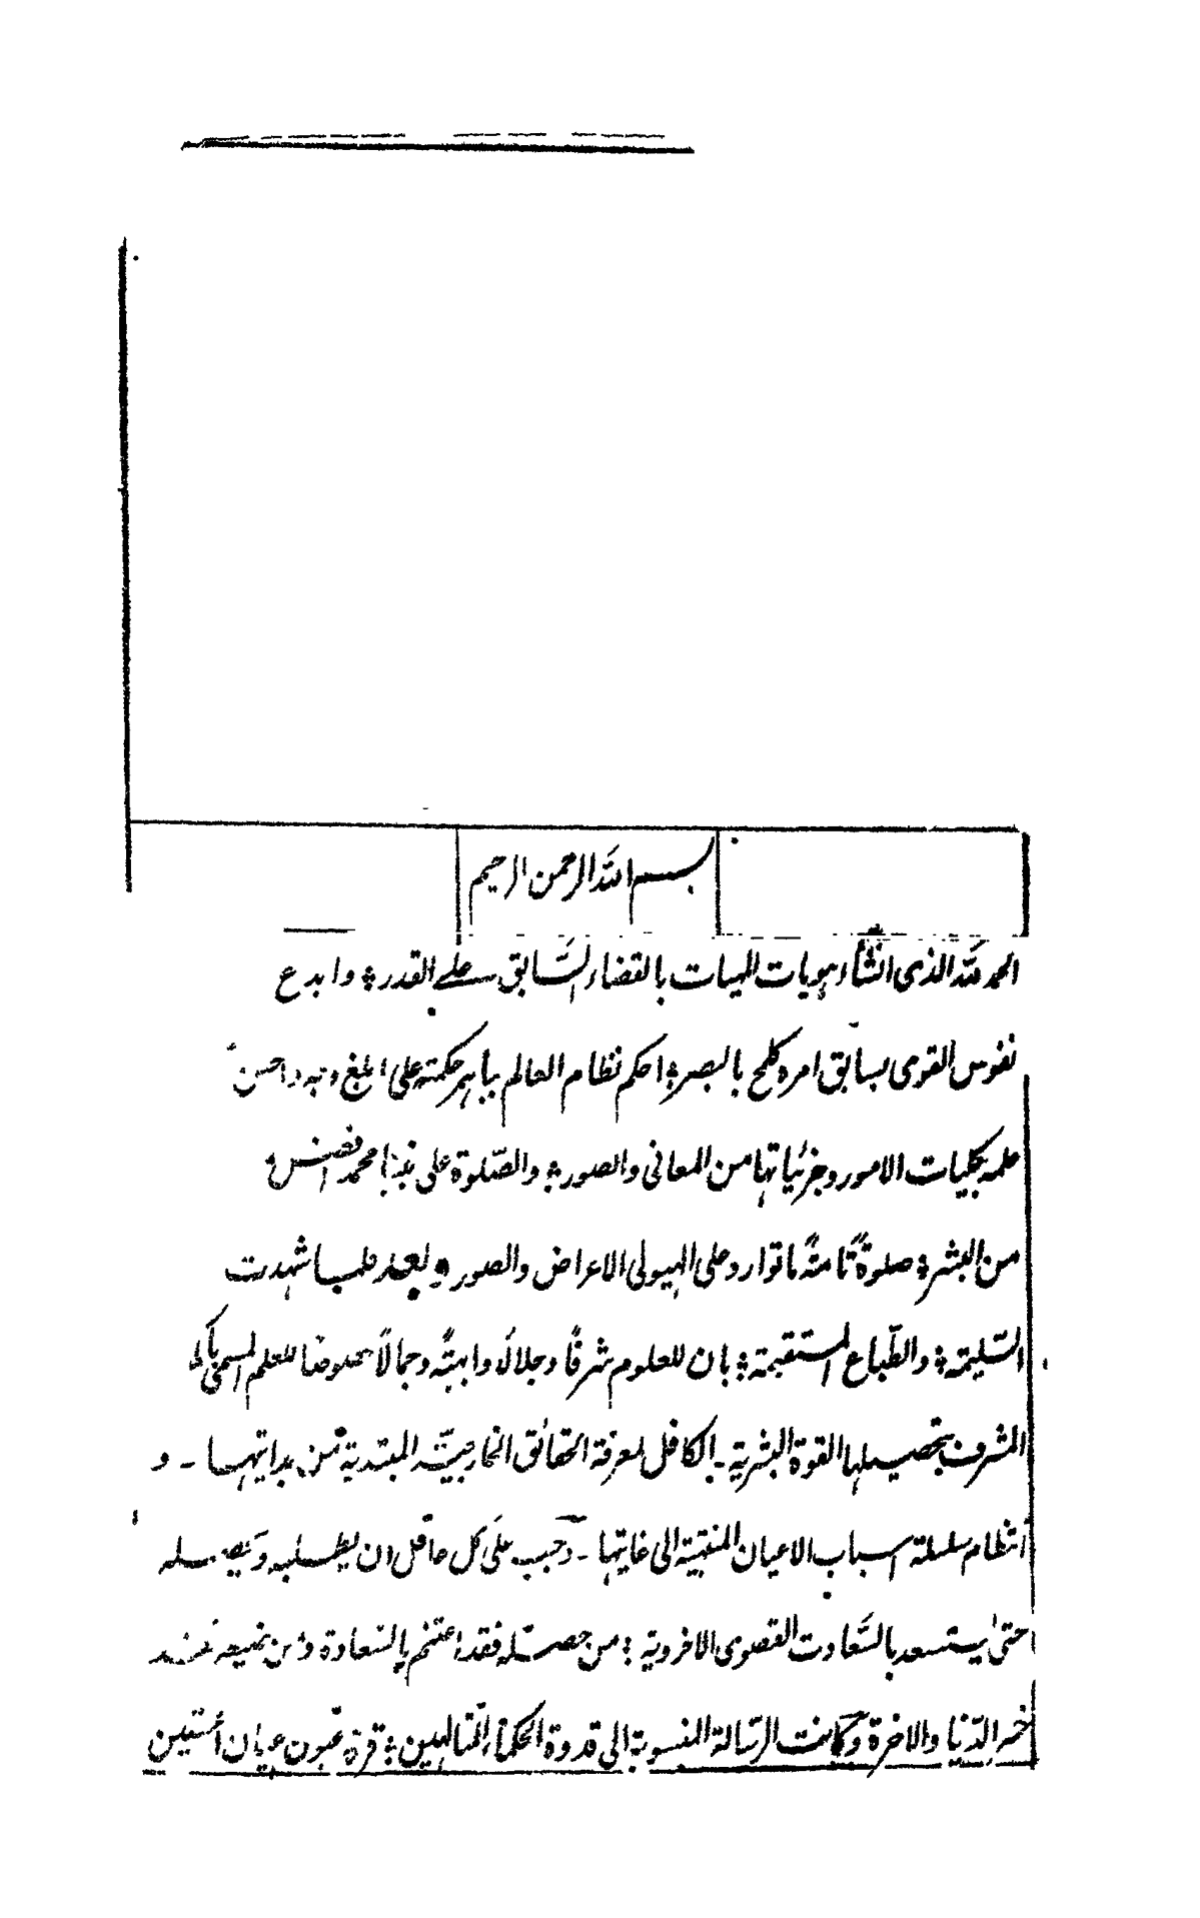 بسم الله الرحمن الرحيم
الحمد لله الذى انشاء هويات المهيات بالقضاء السّابق على القدر؛ وابدع
نفوس القوى بسابق امره كلمح بالبصر؛ احكم نظام العالم بباهر حكمته على ابلغ وجه واحسن
علمه بكليات الامور وجزئياتها من المعانى والصور؛ والصّلوة على نبينا محمد افضل
من البشر؛ صلوةً تامةً ما توارد على الهيولى الاعراض والصور وبعد فلما شهدت
السّليمة؛ والطّباع المستقيمة؛ بان للعلوم شرفًا وجلالة وابهةً وجمالًا للعلم المسمى
المشرف بتحصيلها القوة البشرية۔ الكافل لمعرفة الحقائق الخارجيّة المبتدية من بدايتها ۔ و
انتظام سلسلة اسباب الاعيان المنتهية الى غايتها ۔ وجب على كل عاقل ان يطلبه و
حتى يستسعد بالسّعادت القصوى الاخروية؛ من حصله فقد اغتنم بالسّعادة ومن ضيعه فقد
خسر الدّنيا والاخرة وكانت الرّسالة المنسوبة الى قدوة الحكماء المتالهين؛ قرة عيون